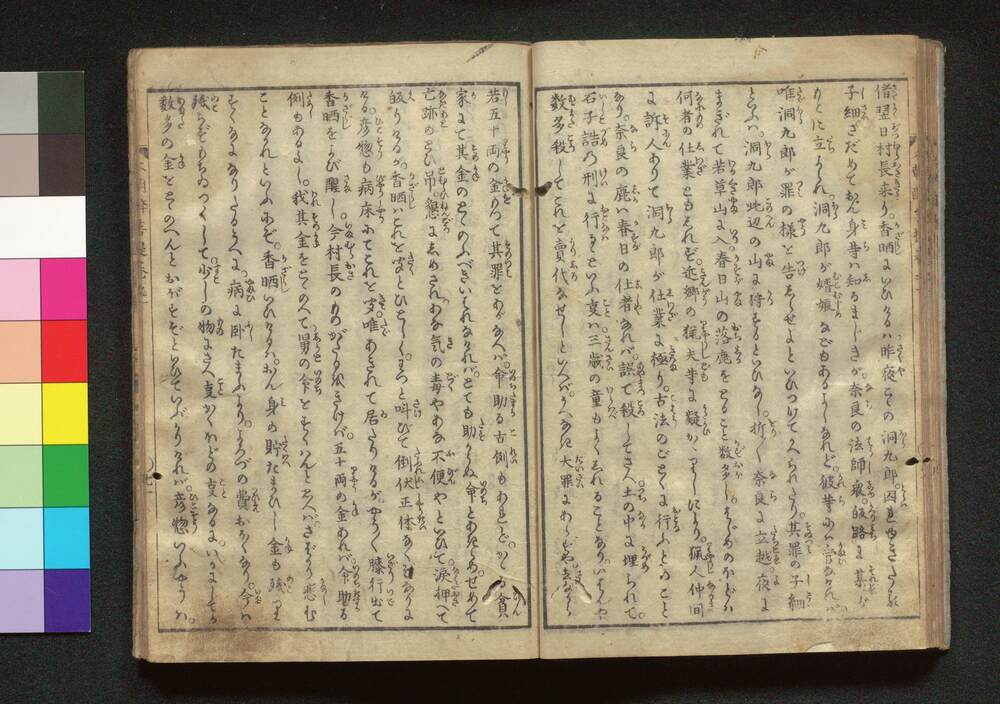 借翌日村長来り。香晒にいひけるは。昨夜そこの洞九郎。囚れゆきたる
子細さだめておん身等は知るまじきが。奈良の法師衆。帰路に某が
りとに立よられ洞九郎が婿娘などもあるよしなれど。彼等に
唯洞九郎が罪の様を告しらせよといひつけてかへられたり。其罪の子細
といふは。洞九郎此辺の山に狩するといひなし。折〻奈良に立越。夜に
まぎれて若草山に入。春日山の落鹿をとること数多し。はじめのほどは
何者の仕業ともしれず。近郷の猟夫等に疑かゝりしにより。猟人仲間
に訴人ありて洞九郎が仕業に極り。古法のごとく行ふとのこと
あり。奈良の鹿は春日の仕者なれば。誤て殺してさへ土の中に埋られて。
石子詰の刑に行るゝといふ事は。三歳の童もよくしれることなり。いはんや
数多殺してこれを賣代なせしといへば。かへなき大罪にあらずや。去ながら
若五十両の金をもつて其罪をあがなへば。命助る古例もあれど。かゝる貧
家にて其金のとゝのふべきいはれなければ。とても助らぬ命とあきらめ。せめて
亡跡のとひ吊。懇にしめされ。あな気の毒やあな不便やといひて涙押へて
帰りける。香晒はこれを聞とひとしく。わつと叫びて倒伏正体なくなりに
ける。彦惣も病床にてこれを聞。唯あきれて居たりけるが。やうやく膝行出て
香晒をよび醒し。今村長のものがたるをきけば。五十両の金あれば命助る
例もあるよし。我其金をとゝのへて舅の命をすくはんといへば。さばかり悲む
ことなかれといふにぞ。香晒いひけるは。おん身の貯たまひし金も。残り
すくなになりたるうへに。病に臥たまふより。よろづの費おほくなり。今は
残らずもちゐつくして。少しの物にさへ事かくほどの事なるに。いかにしてか
数多の金をとゝのへんとおぼすぞといひていぶかりければ。彦惣いふやうは。